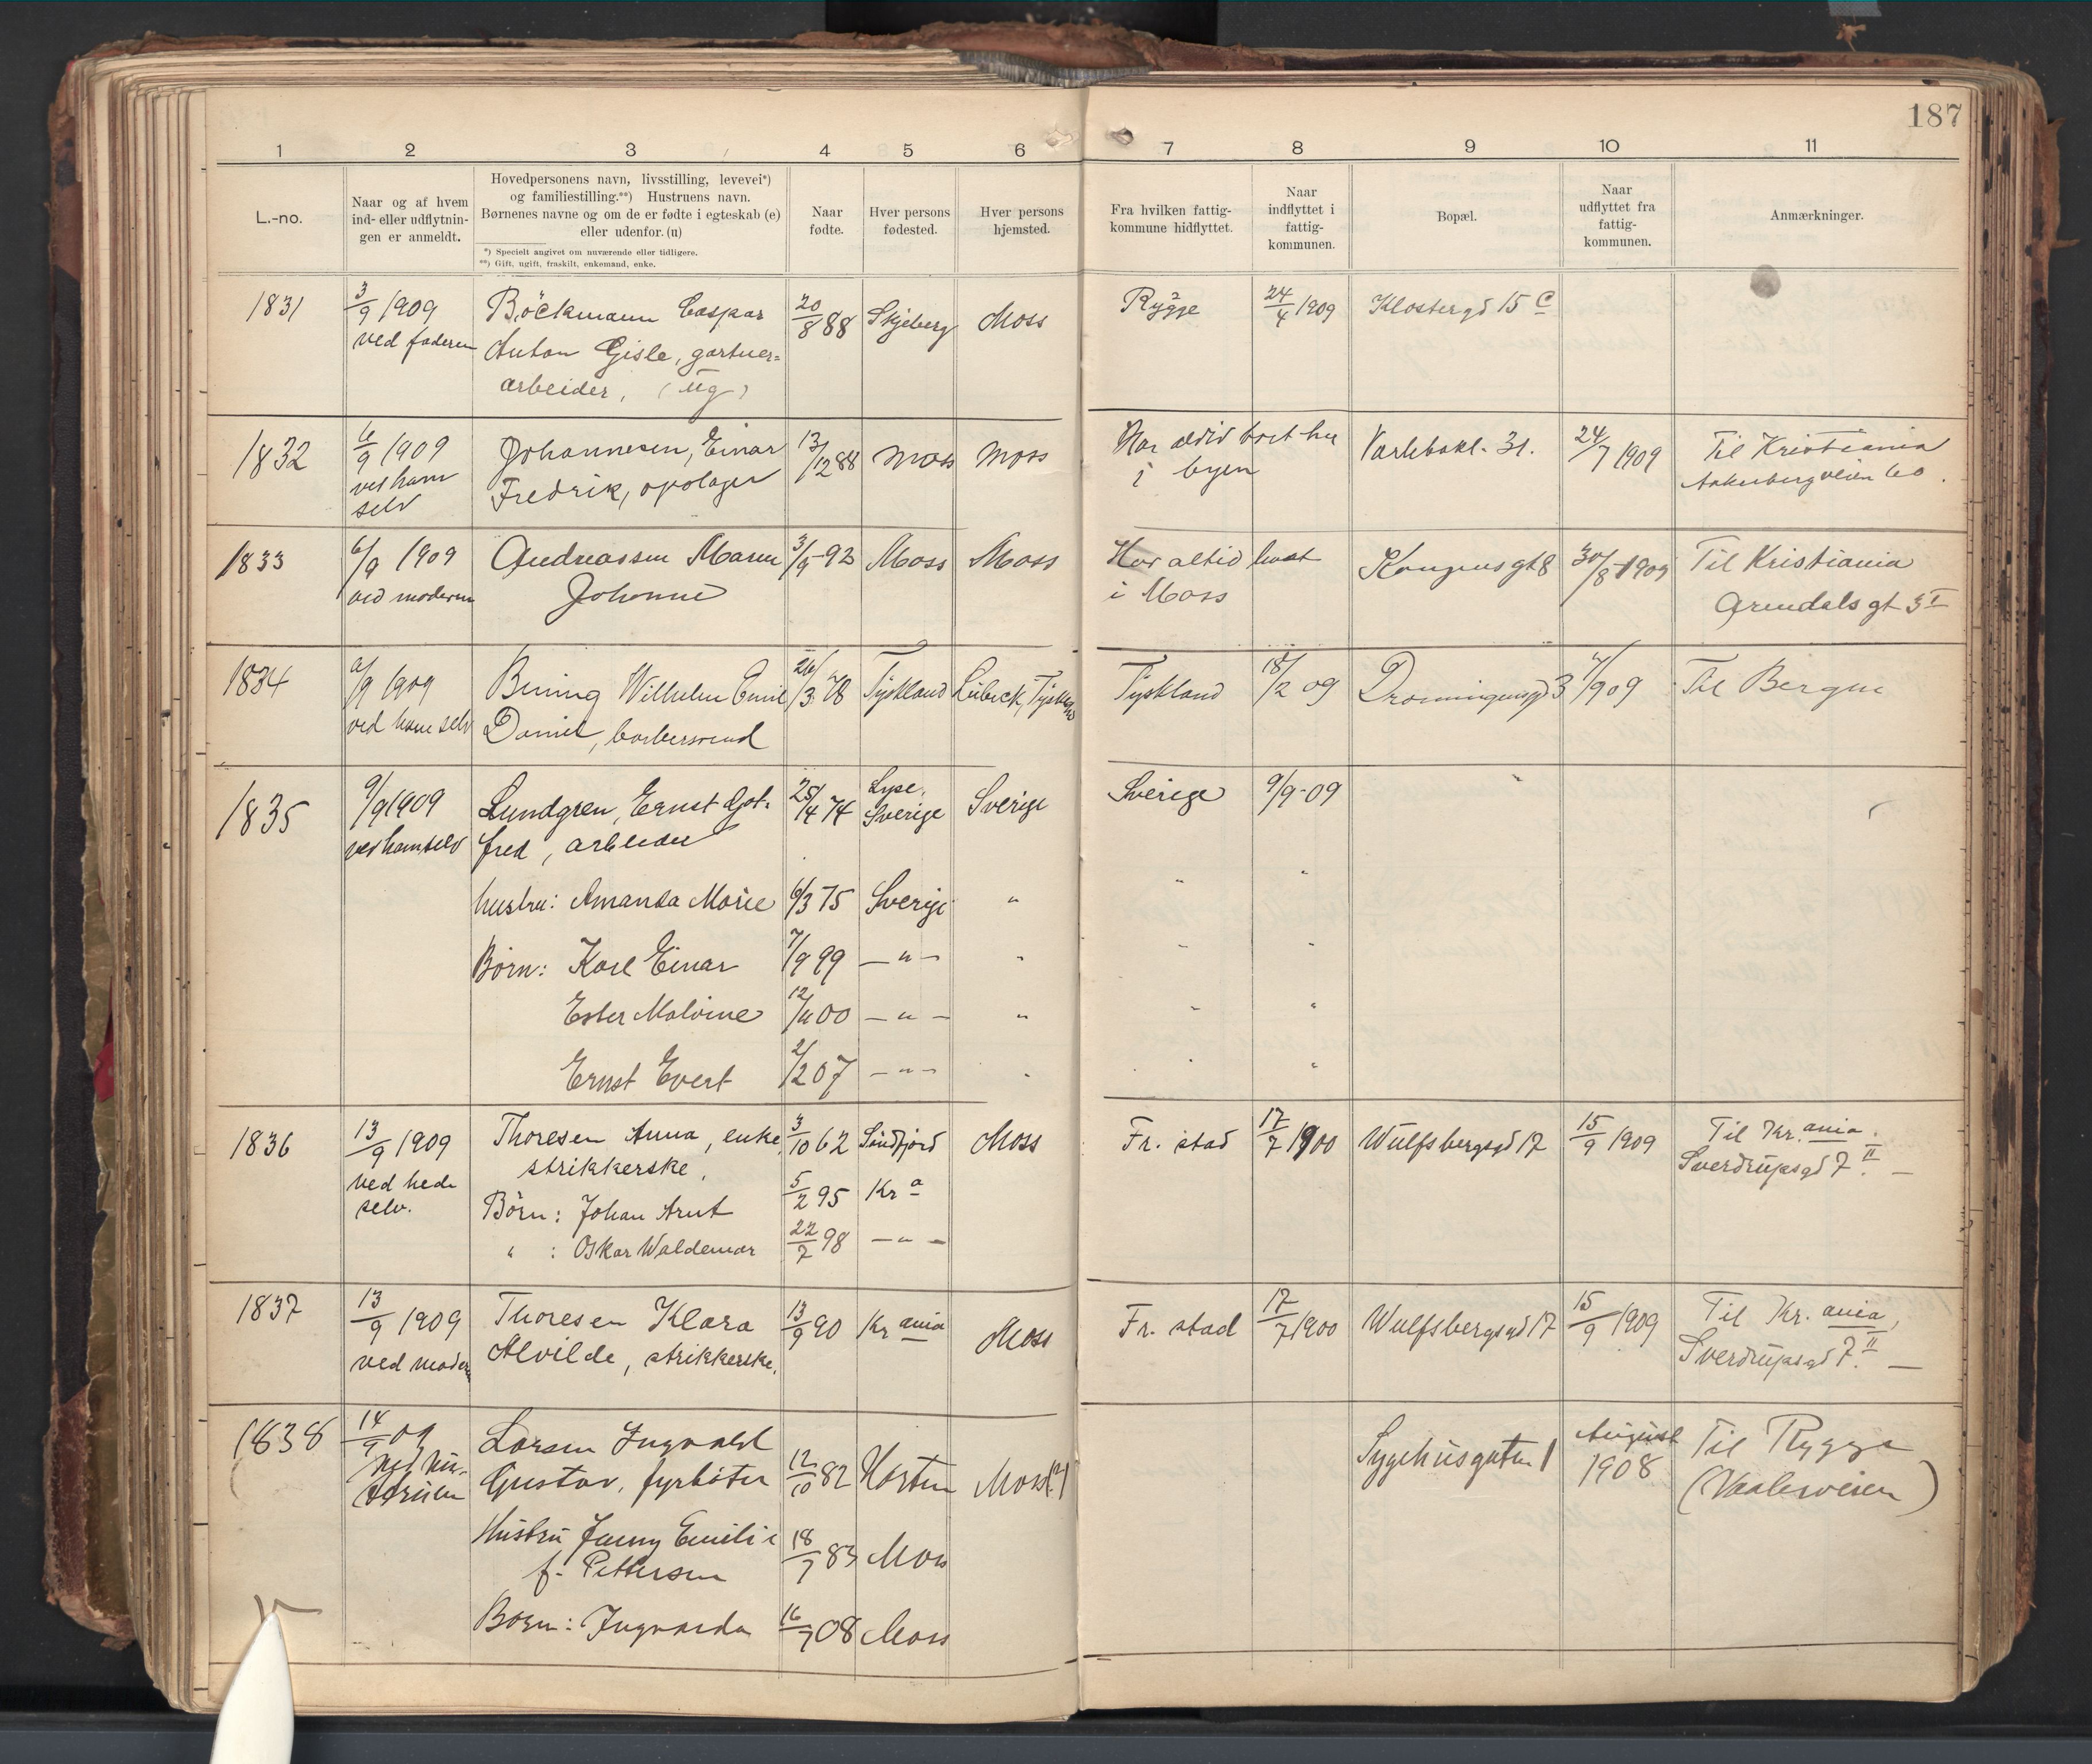 187
1 2 3 4 5 6 7 8 9 10 11
L.-no.
Naar og af hvem
ind- eller udflytnin-
gen er anmeldt.
Hovedpersonens navn, livsstilling, levevei*)
og familiestilling.**) Hustruens navn.
Børnenes navne og om de er fødte i egteskab (e)
eller udenfor. (u)
*) Specielt angivet om nuværende eller tidligere.
**) Gift, ugift, fraskilt, enkemand, enke.
Naar
fødte.
Hver persons
fødested.
Hver persons
hjemsted.
Fra hvilken fattig-
kommune hidflyttet.
Naar
indflyttet i
fattig-
kommunen.
Bopæl.
Naar
udflyttet fra
fattig-
kommunen.
Anmærkninger.
1831
3/9 1909
ved faderen
Böckmann Caspar
Anton Gisle, gartner=
arbeider, (ug)
20/8 88
Skjeberg
Moss
Rygge
24/4 1909
Klostergd 15 c
1832
6/9 1909
ved ham
selv
Johannesen, Einar
Fredrik, opvlager
13/12 88
Moss
Moss
Har altid boet her
i byen
Varlebakk. 31.
24/7 1909
Til Kristiania
Aakerbergveien 60.
1833
6/9 1909
ved moderen
Andreassen Maren
Johanne
3/9-92
Moss
Moss
Har altid boet
i Moss
Kongensgt 8
30/8-1909
Til Kristiania
Arendalsgt 3 I
1834
9/9 1909
ved ham selv
Bening Wilhelm Emil
Daniel, barbersvend
26/3 78
Tyskland
Lübeck, Tyskland
Tyskland
18/2 09
Dronningensgd 3
7/9 09
Til Bergen
1835
9/9 1909
ved ham selv
Lundgren, Ernst Got-
fred, arbeider
25/4 74
Lyse,
Sverige
Sverige
Sverige
9/9-09
hustru: Amanda Marie
6/3 75
Sverige
"
"
"
Børn: Karl Einar
7/9 99
— " —
"
"
"
Ester Malvine
12/11 00
— " —
"
"
"
Ernst Evert
2/2 07
— " —
"
"
"
1836
13/9 1909
ved hende
selv.
Thoresen Anna, enke,
strikkerske,
3/10 62
Søndfjord
Moss
Fr. stad
17/7 1900
Wulfsbergsgd 17
15/9 1909
Til Kr. ania.
Sverdrupsgd 7. II —
Børn: Johan Arnt
5/2 95
Kr a
" : Oskar Waldemar
22/7 98
— " —
1837
13/9 1909
ved moderen
Thoresen Klara
Alvilde, strikkerske.
13/9 90
Kr ania
Moss
Fr. stad
17/7 1900
Wulfsbergsgd 17
15/9 1909
Til Kr. ania,
Sverdrupsgd 7. II —
1838
14/9 09
ved hu-
struen
Larsen Ingvald
Gustav, fyrbøter
12/10 82
Horten
Moss(?)
Sygehusgaten 1
August
1908
Til Rygge
(Vaalerveien)
Hustru Jenny Emilie
f. Pettersen
18/7 83
Moss
Børn: Ingvarda
16/7 08
Moss